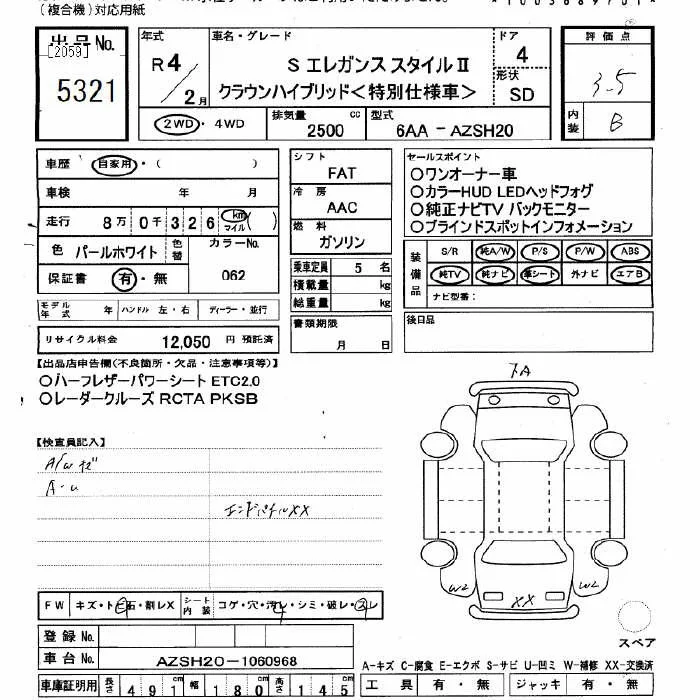 (複合機)対応用紙
出品No.
[2059]
5321
年式
R4/2月
車名・グレード
S エレガンス スタイルⅡ
クラウンハイブリッド<特別仕様車>
ドア
4
形状
SD
評価点
3.5
内装
B
2WD・4WD
排気量
2500 cc
型式
6AA-AZSH20
車歴 自家用・( )
車検 年 月
走行 8万0千326 km マイル( )
色 パールホワイト
色替
カラーNo.
062
保証書 有・無
モデル年式 年 ハンドル 左・右 ディーラー・並行
リサイクル料金 12,050 円 預託済
シフト
FAT
冷房
AAC
燃料
ガソリン
乗車定員 5 名
積載量 kg
総重量 kg
書類期限
月 日
セールスポイント
○ワンオーナー車
○カラーHUD LEDヘッドフォグ
○純正ナビTV バックモニター
○ブラインドスポットインフォメーション
装備品
S/R 純A/W P/S P/W ABS
純TV 純ナビ 革シート 外ナビ エアB
ナビ型番:
後日品
【出品店申告欄(不良箇所・欠品・注意事項等)】
○ハーフレザーパワーシート ETC2.0
○レーダークルーズ RCTA PKSB
【検査員記入】
A/W キズ
A-U
エンドパネルXX
A
W2
W2
XX
スペア
FW キズ・トビ石・割レX
シート内装 コゲ・穴・汚レ・シミ・破レ・スレ
登録No.
車台No. AZSH20-1060968
車庫証明用 長さ 491cm 幅 180cm 高さ 145cm
A-キズ C-腐食 E-エクボ S-サビ U-凹ミ W-補修 XX-交換済
工具 有・無 ジャッキ 有・無